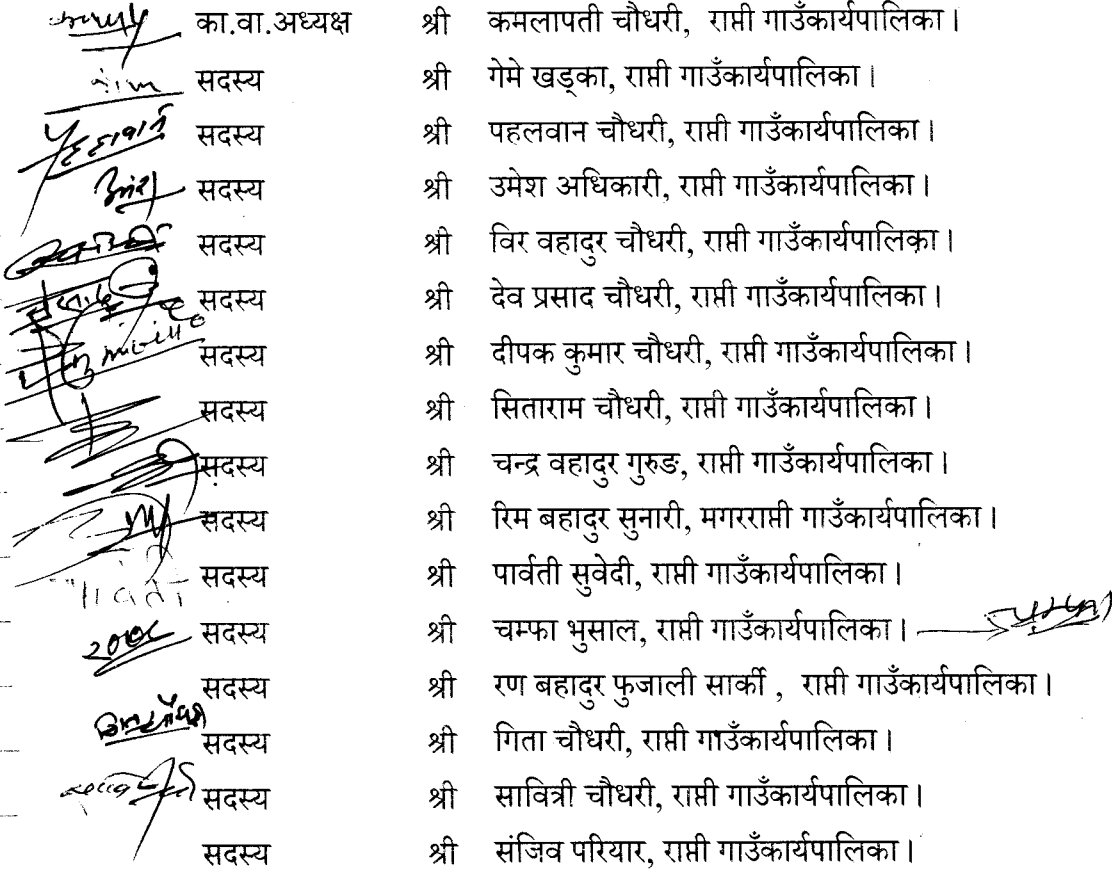 का.वा.अध्यक्ष श्री कमलापती चौधरी, राप्ती गाउँकार्यपालिका।
सदस्य श्री गेमे खड्का, राप्ती गाउँकार्यपालिका।
सदस्य श्री पहलवान चौधरी, राप्ती गाउँकार्यपालिका।
सदस्य श्री उमेश अधिकारी, राप्ती गाउँकार्यपालिका।
सदस्य श्री विर वहादुर चौधरी, राप्ती गाउँकार्यपालिका।
सदस्य श्री देव प्रसाद चौधरी, राप्ती गाउँकार्यपालिका।
सदस्य श्री दीपक कुमार चौधरी, राप्ती गाउँकार्यपालिका।
सदस्य श्री सिताराम चौधरी, राप्ती गाउँकार्यपालिका।
सदस्य श्री चन्द्र वहादुर गुरुङ, राप्ती गाउँकार्यपालिका।
सदस्य श्री रिम बहादुर सुनारी, मगरराप्ती गाउँकार्यपालिका।
सदस्य श्री पार्वती सुवेदी, राप्ती गाउँकार्यपालिका।
सदस्य श्री चम्फा भुसाल, राप्ती गाउँकार्यपालिका।
सदस्य श्री रण बहादुर फुजाली सार्की , राप्ती गाउँकार्यपालिका।
सदस्य श्री गिता चौधरी, राप्ती गाउँकार्यपालिका।
सदस्य श्री सावित्री चौधरी, राप्ती गाउँकार्यपालिका।
सदस्य श्री संजिव परियार, राप्ती गाउँकार्यपालिका।